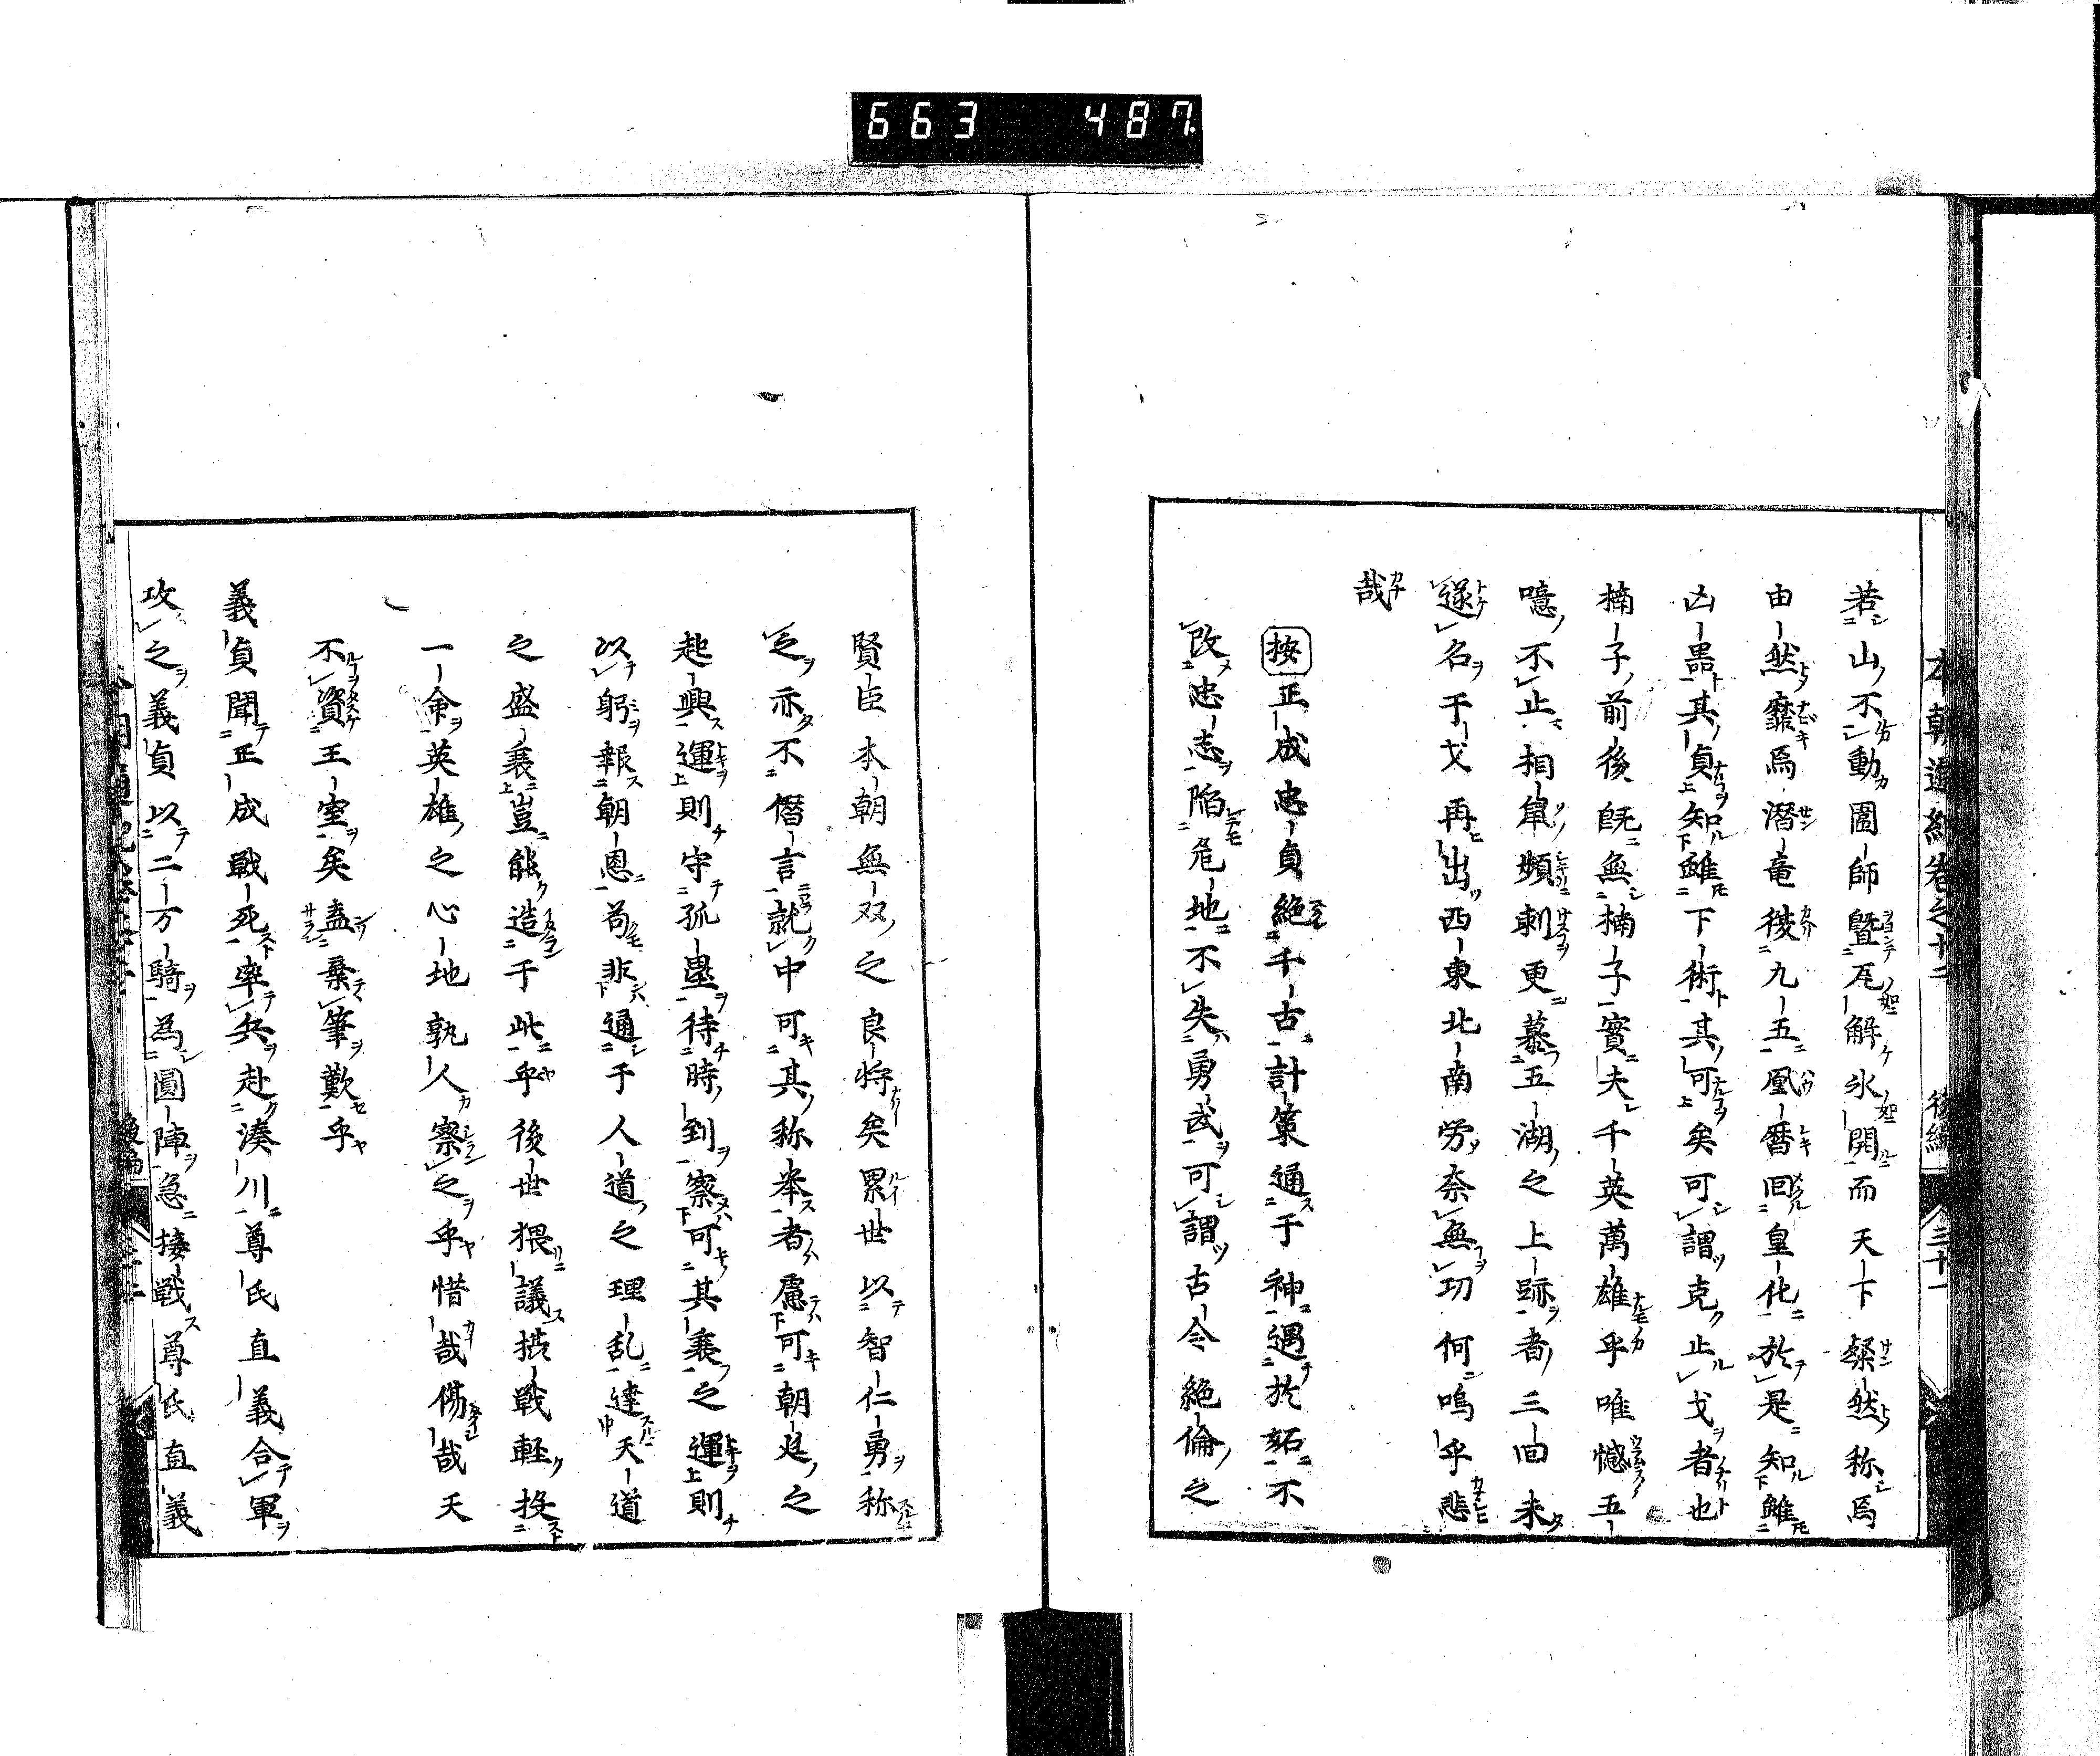 663 487
本朝通紀卷之十二 後編 三十一
若山不動圍師曁瓦解氷開而天下粲然称焉
由然靡焉潜竜後九五凰暦回皇化於是知雖
凶噐其貞知雖下術其可矣可謂克止戈者也
楠子前後既無楠子實夫千英萬雄乎唯憾五
噫不止相鼻頻刺更慕五湖之上跡者三囘未
遂名干戈再出西東北南勞奈無功何嗚乎悲
哉
按正成忠貞絶千古計策通于神遇於妬不
改忠志陥危地不失勇武可謂古今絶倫之
賢臣本朝無双之良将矣累世以智仁勇称
之亦不僭言就中可其称举者慮可朝廷之
起興運則守孤壘待時到察可其衰之運則
以躬報朝恩苟非通于人道之理乱達天道
之盛衰豈能造于此乎後世猥議拱戦軽投
一命英雄之心地孰人察之乎惜哉傷哉天
不資王室矣盍棄筆歎乎
義貞聞正成戦死率兵赴湊川尊氏直義合軍
攻之義貞以二万騎為圓陣急接戦尊氏直義